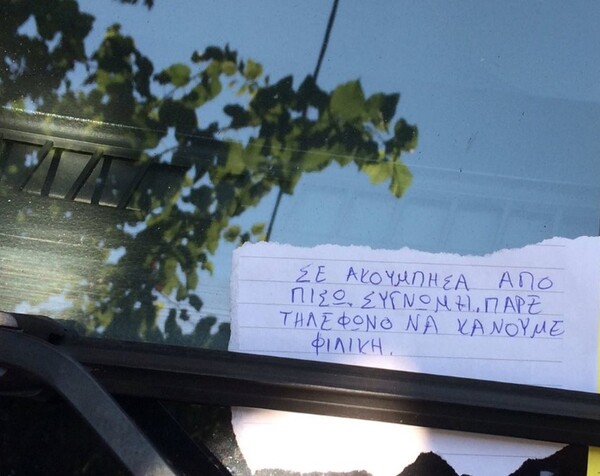 ΣΕ ΑΚΟΥΜΠΗΣΑ ΑΠΟ
ΠΙΣΩ. ΣΥΓΝΩΜΗ. ΠΑΡΕ
ΤΗΛΕΦΩΝΟ ΝΑ ΚΑΝΟΥΜΕ
ΦΙΛΙΚΗ.